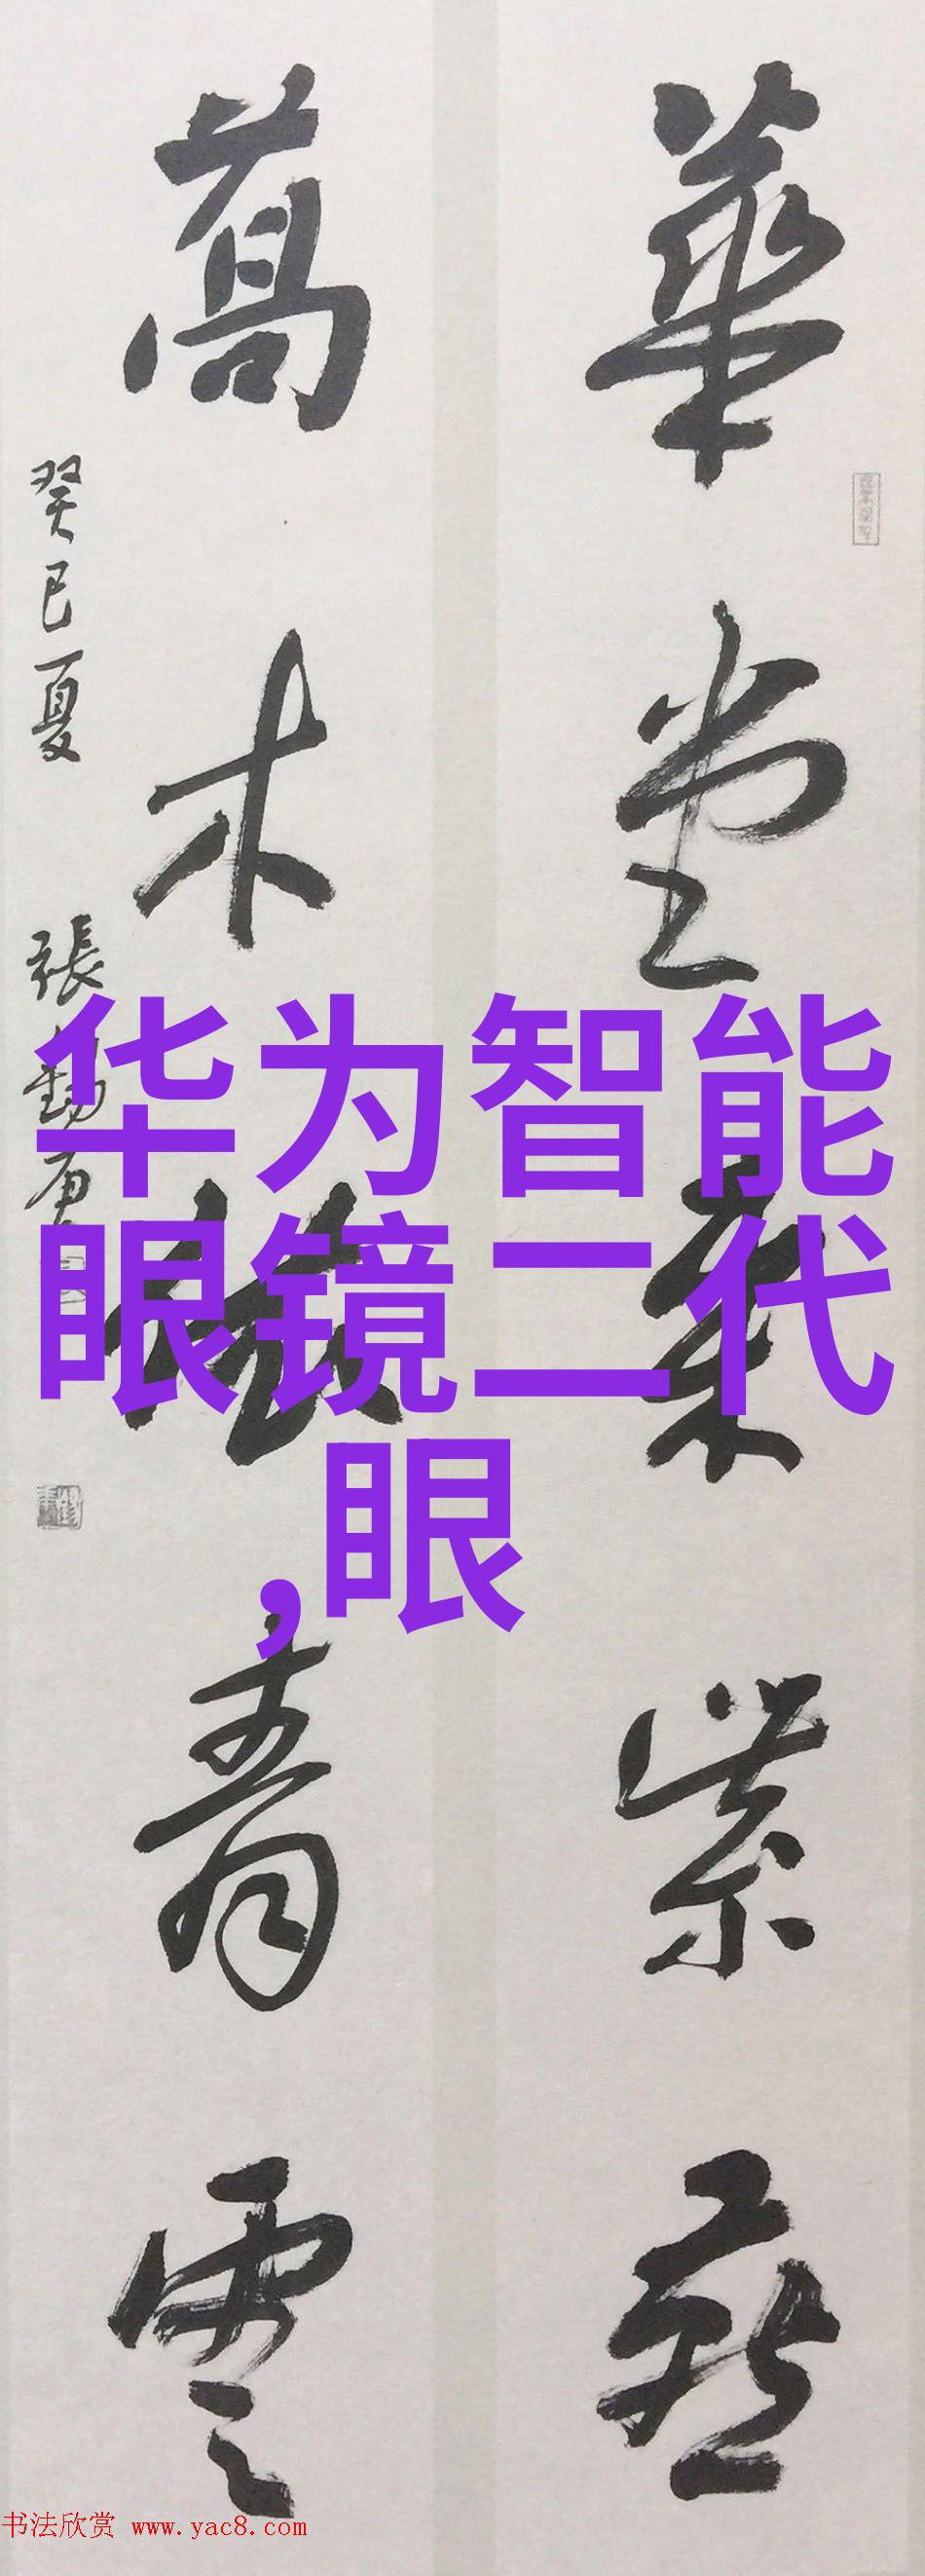 華堂來紫燕
萬木 青雲
癸巳夏 張
华为智能
眼镜二代
,眼
书法欣赏 www.yac8.com